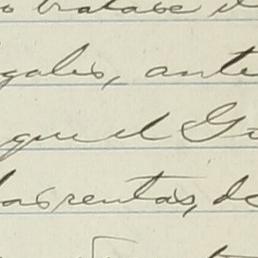 o tratase d
galis, ante
que el Go
las rentas, de